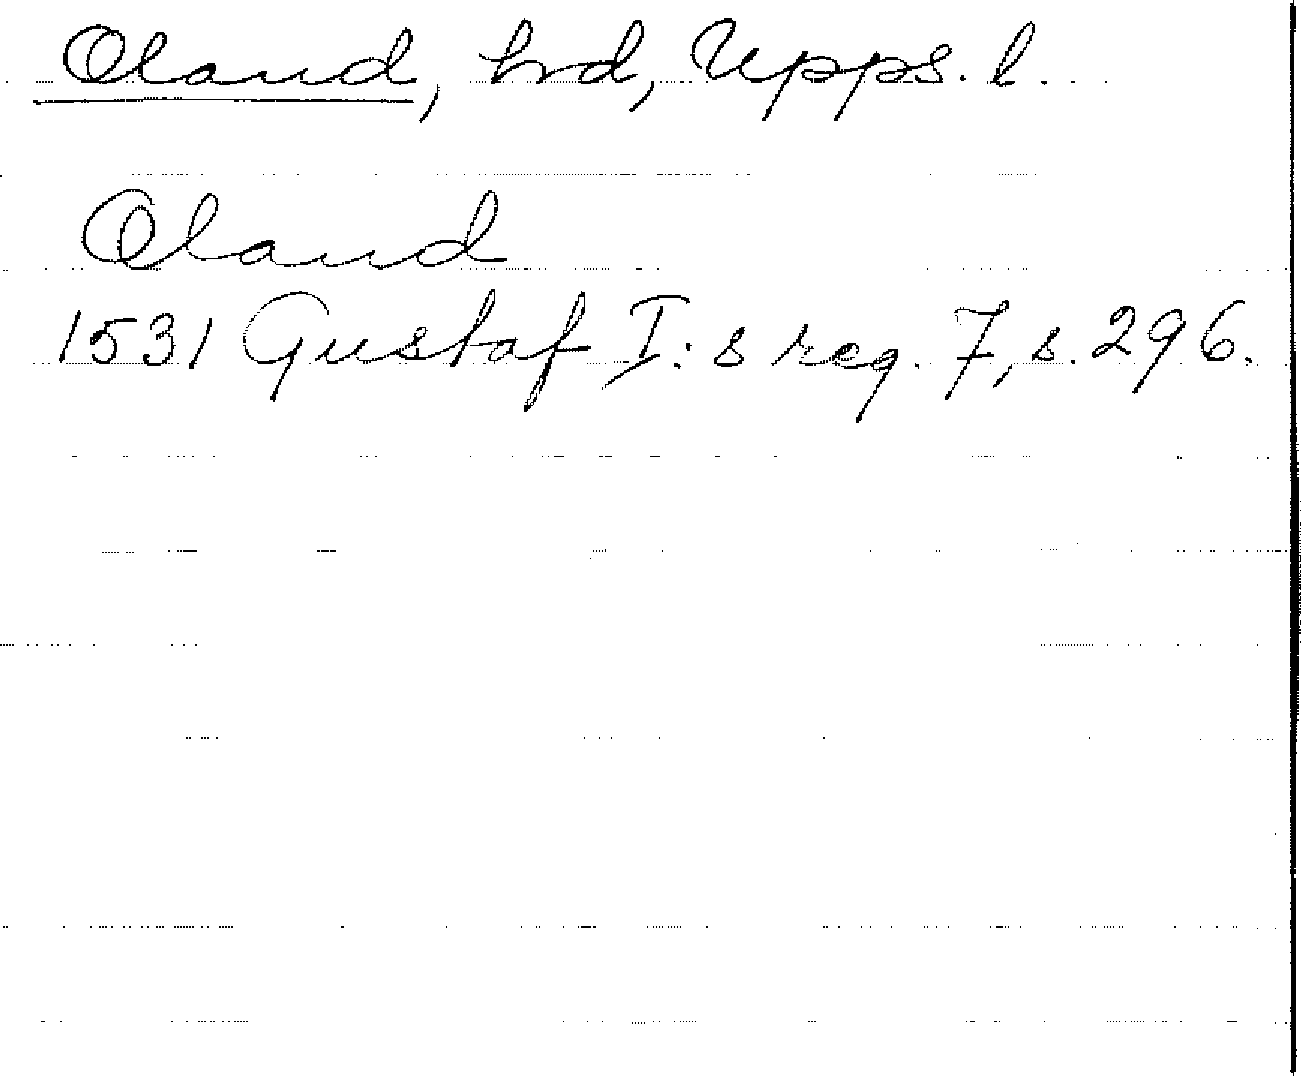 Oland, hrd, Upps. l.
Oland
1531 Gustaf I:s reg. 7, s. 296.